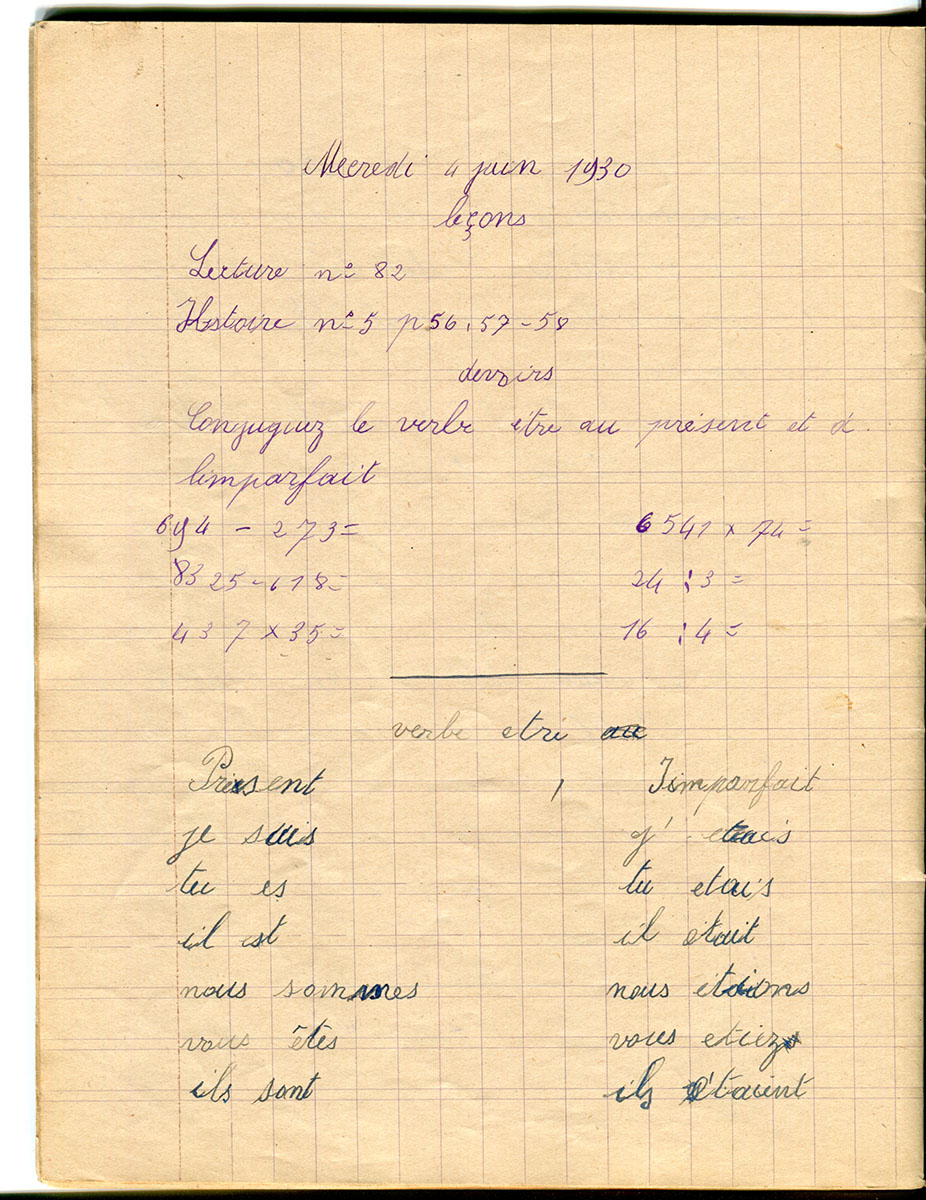 Mecredi 4 juin 1930
leçons
Lecture n° 82
Histoire n° 5 p 56, 57 - 58
devoirs
Conjuguez le verbe être au présent et à
limparfait
694 - 273 = 6541 x 74 =
8325 - 618 = 24 : 3 =
437 x 35 = 16 : 4 =
verbe etre
Present Imparfait
je suis j'etais
tu es tu etais
il est il était
nous sommes nous étions
vous êtes vous etiez
ils sont ils étaient